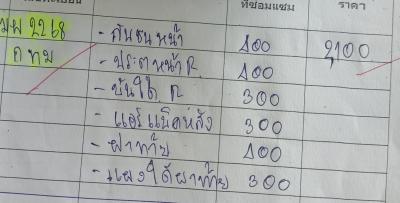 ที่ซ่อมแซม ราคา
มพ 2268 - กันชนหน้า 400 2,100
กทม - ประตูหน้า R. 400
- บันใด R 300
- แอร์แบ็คหลัง 300
- ฝาท้าย 400
- แผงใต้ฝาท้าย 300